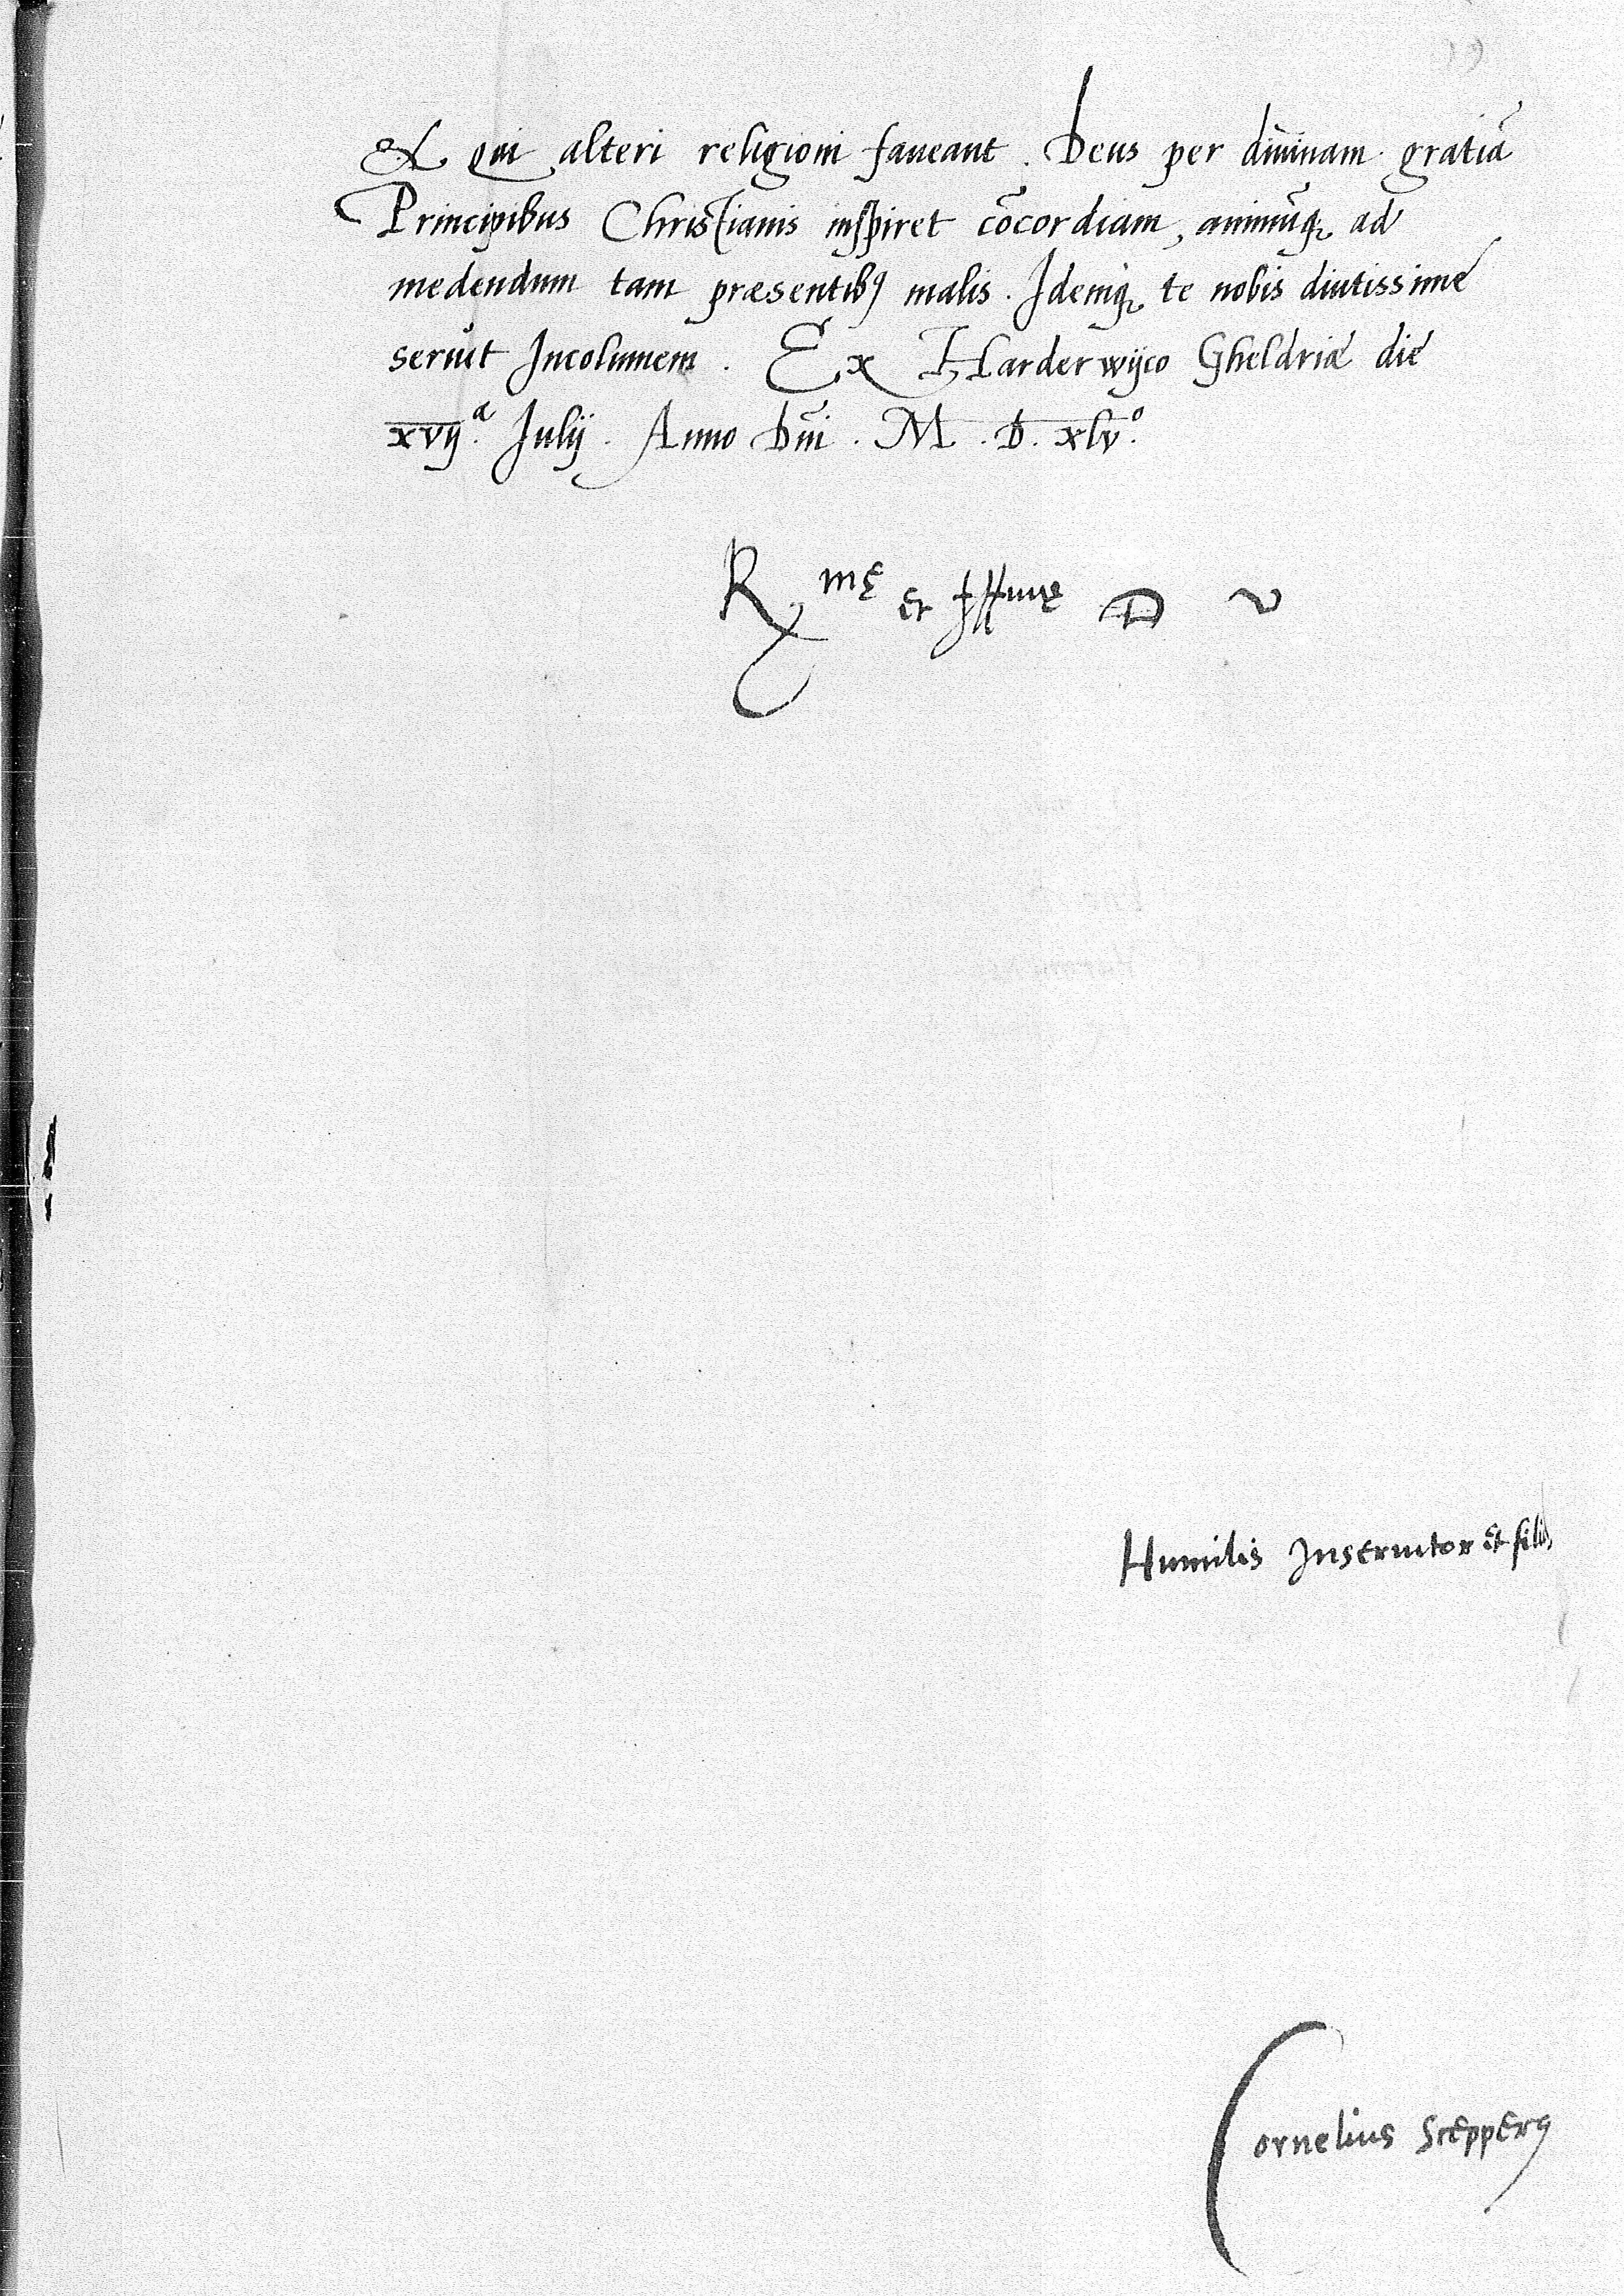 & qui alteri religioni faueant. Deus per diuinam gratiā
Principibus Christianis inspiret cōcordiam, animūq; ad
medendum tam præsentib9 malis. Idemq; te nobis diutissime
seruet Incolumem. Ex Harderwyco Gheldriæ die
xvij.a Julij. Anno Dñi. M. D. xlv.o
R mę et Illmę D V
Humilis Inseruitor et fili9
Cornelius Scepper9